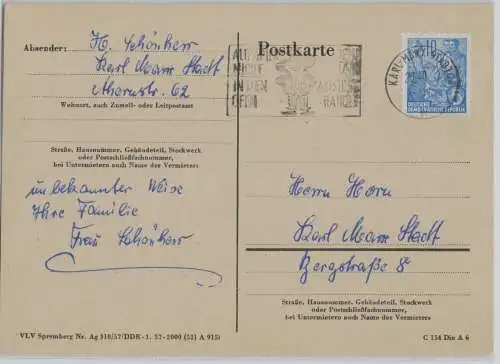 Absender: H. Schönherr
Karl Marx Stadt
Ahornstr. 62
Wohnort, auch Zustell- oder Leitpostamt
Straße, Hausnummer, Gebäudeteil, Stockwerk
oder Postschließfachnummer,
bei Untermietern auch Name des Vermieters
unbekannter Weise
Ihre Familie
Frau Schönherr
VLV Spremberg Nr. Ag 310/57/DDR - 1. 57 - 2000 (52) A 915)
Postkarte
NICHT
IN DEN
KARL-MARX-STADT
10
DEUTSCHE
DEMOKRATISCHE REPUBLIK
Herrn Horn
Karl Marx Stadt
Bergstraße 8
Straße, Hausnummer, Gebäudeteil, Stockwerk
oder Postschließfachnummer,
bei Untermietern auch Name des Vermieters
C 154 Din A 6